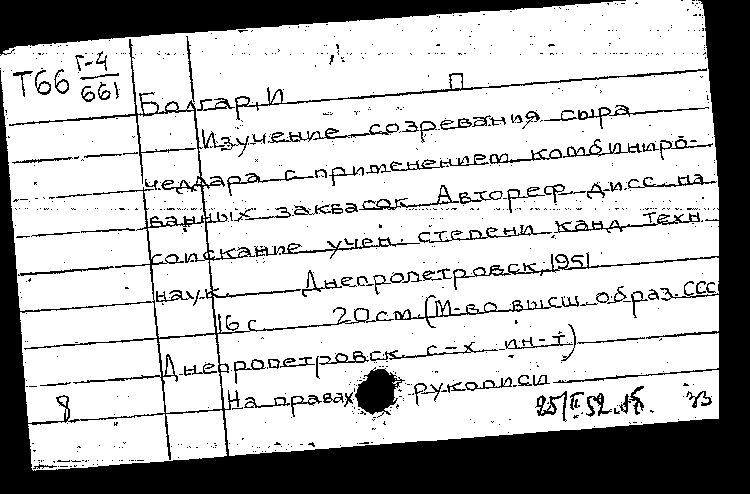 Т66 Г-4/661
Болгар, И П
Изучение созревания сыра
чеддара с применением комбиниро-
ванных заквасок Автореф дисс на
соискание учен. степени канд техн
наук. Днепропетровск, 1951
16 с 20 см (М-во высш. образ. СССР
Днепропетровск с-х ин-т)
На правах рукописи
8 25/II 52